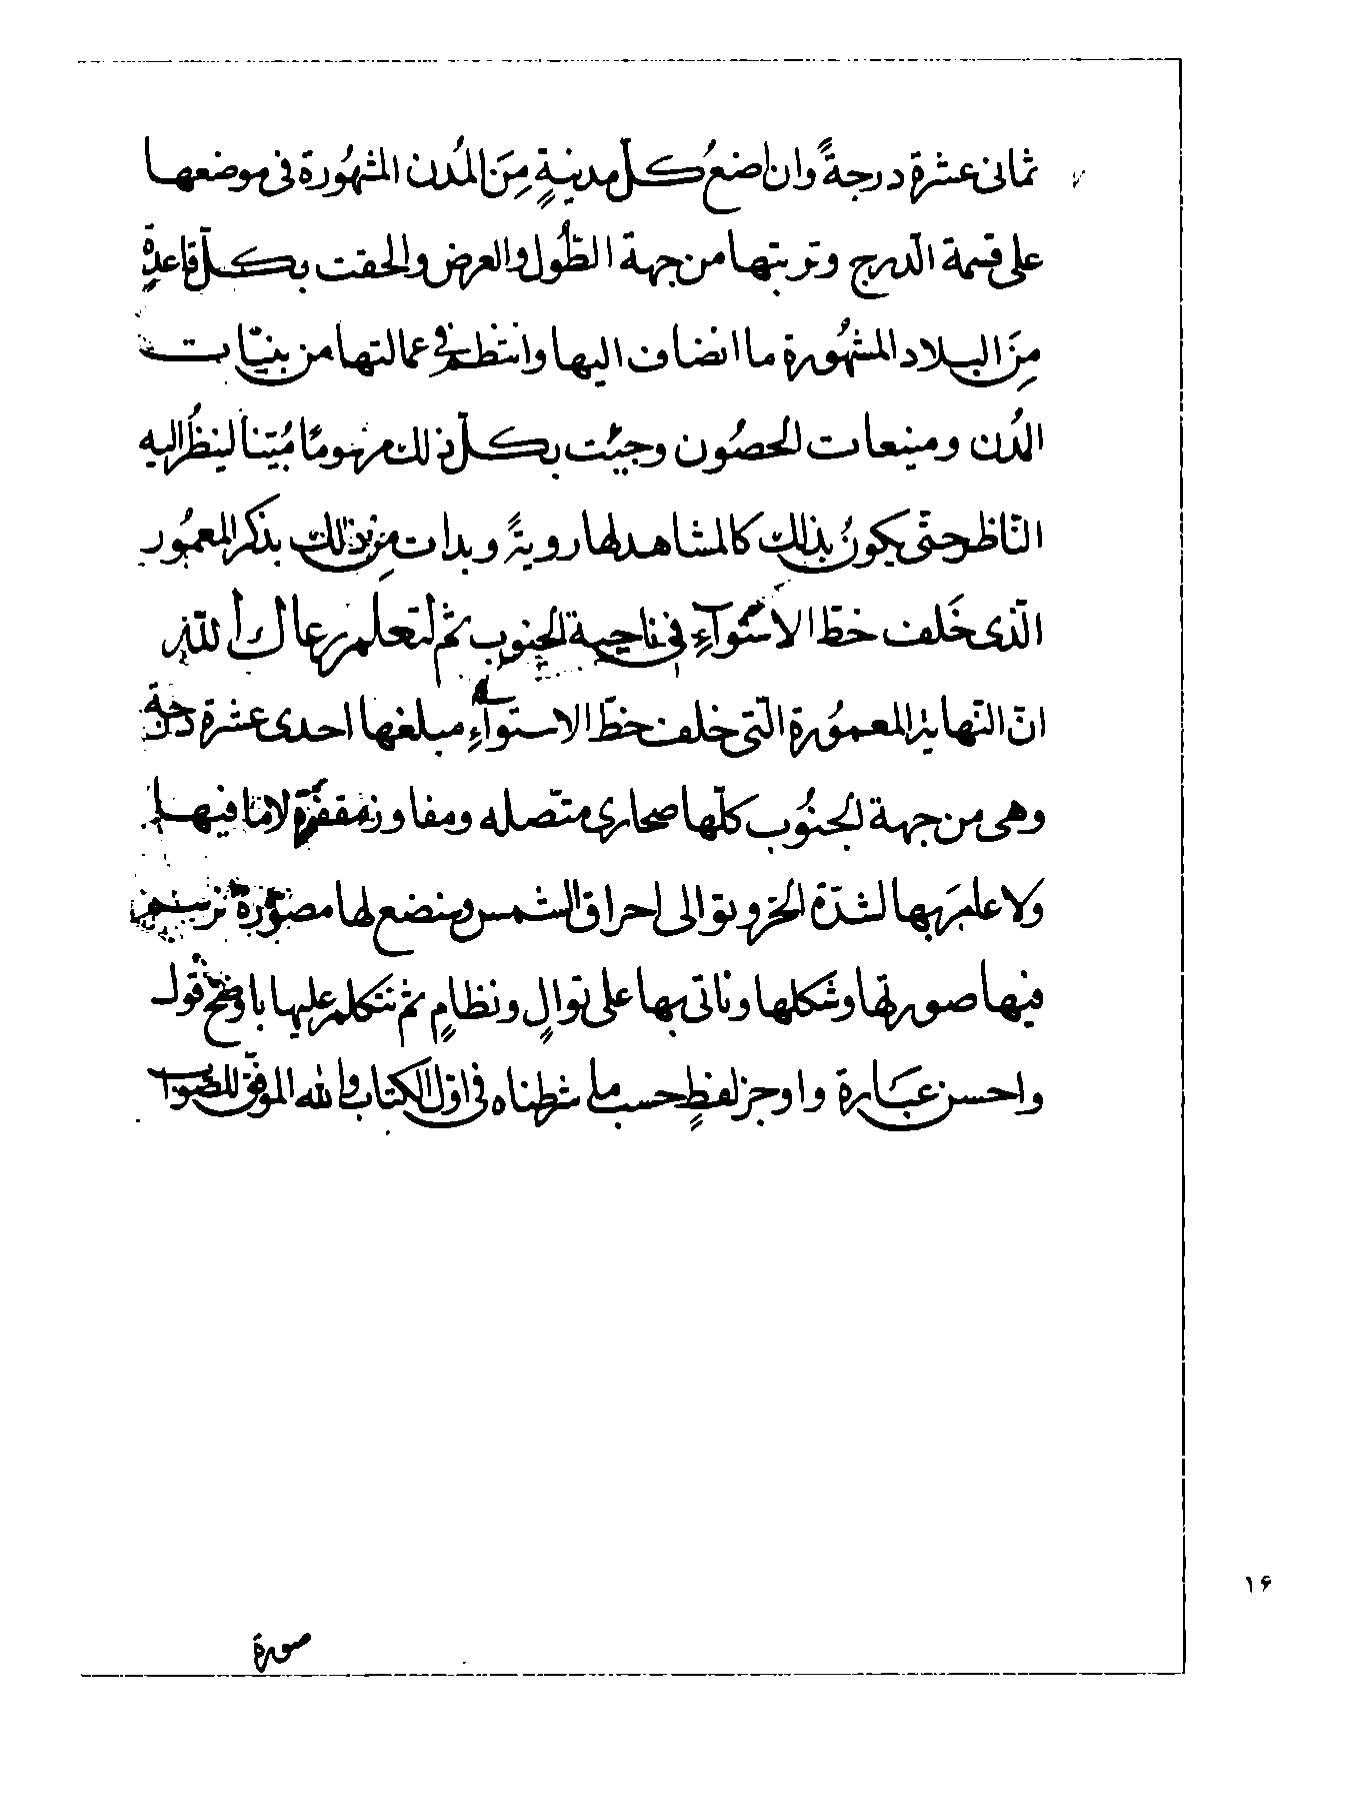 ثمانى عشرة درجةً وان اضعُ كلّ مدينةٍ مِنَ المُدن المشهُورة فى موضعها
على قسمة الدّرج وتربتها من جهة الطُول والعرض والحقت بكلّ قاعدةٍ
مِنَ البلاد المشهُورة ما انضاف اليها وانتظم فى عمالتها من بنيّات
المُدن ومنيعات الحصُون وجيُت بكلّ ذلك مرسومًا مُبيّناً لينظُر اليه
النّاظر حتّى يكونُ بذلك كالمشاهد لها رويةً وبدات مِن ذلك بذكر المعمُور
الّذى خَلف خطّ الاستوآءِ فى ناحية الجنوب ثمّ لتعلم رعاك اللّه
انّ النّهاية المعمُورة الّتى خلف خطّ الاستوآءِ مبلغها احدى عشرة درجة
وهى من جهة الجنُوب كلّها صحارى متّصله ومفاوز مقفرة لا ما فيها
ولا علم بها لشدّة الحرّ وتوالى احراق الشمس وسنضع لها مصوّرة نرسم
فيها صورتها وشكلها وناتى بها على توالٍ ونظامٍ ثمّ نتكلم عليها باوضح قول
واحسن عبَارة واوجز لفظٍ حسب ما شرطناه فى اوّل الكتاب والله الموفّق للصّواب
۱۶
صورة